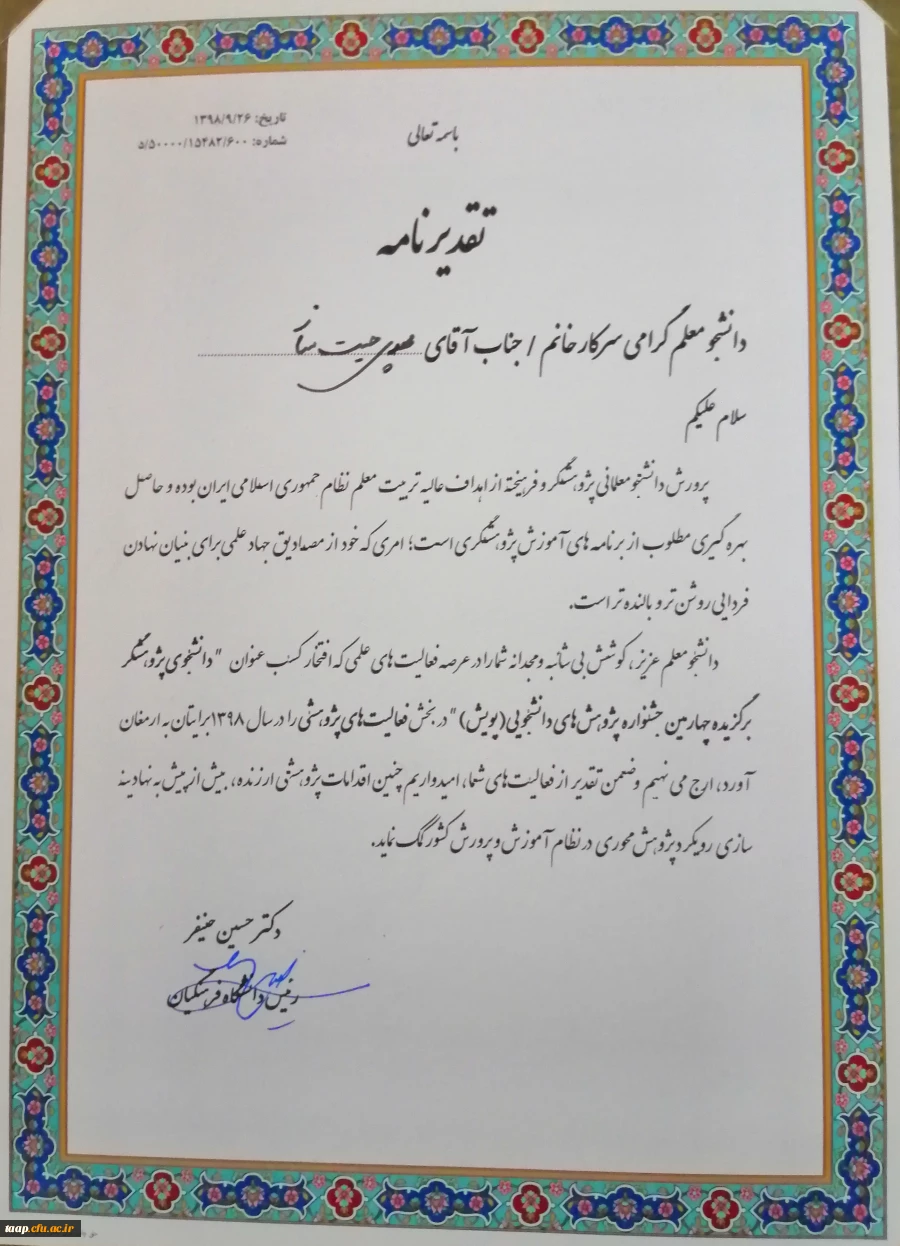 باسمه تعالی
تاریخ: ۱۳۹۸/۹/۲۶
شماره: ۵/۵۰۰۰۰/۱۵۴۸۲/۶۰۰
تقدیرنامه
دانشجو معلم گرامی سرکار خانم / جناب آقای
سلام علیکم
پرورش دانشجو معلمانی پژوهشگر و فرهیخته از اهداف عالیه تربیت معلم نظام جمهوری اسلامی ایران بوده و حاصل
بهره گیری مطلوب از برنامه های آموزش پژوهشگری است؛ امری که خود از مصادیق جهاد علمی برای بنیان نهادن
فردایی روشن تر و بالنده تر است.
دانشجو معلم عزیز، کوشش بی شائبه و مجدانه شما را در عرصه فعالیت های علمی که افتخار کسب عنوان "دانشجوی پژوهشگر
برگزیده چهارمین جشنواره پژوهش های دانشجویی (پویش)" در بخش فعالیت های پژوهشی را در سال ۱۳۹۸ برایتان به ارمغان
آورد، ارج می نهیم و ضمن تقدیر از فعالیت های شما، امیدواریم چنین اقدامات پژوهشی ارزنده، بیش از پیش به نهادینه
سازی رویکرد پژوهش محوری در نظام آموزش و پرورش کشور کمک نماید.
دکتر حسین خنیفر
رئیس دانشگاه فرهنگیان
taap.cfu.ac.ir